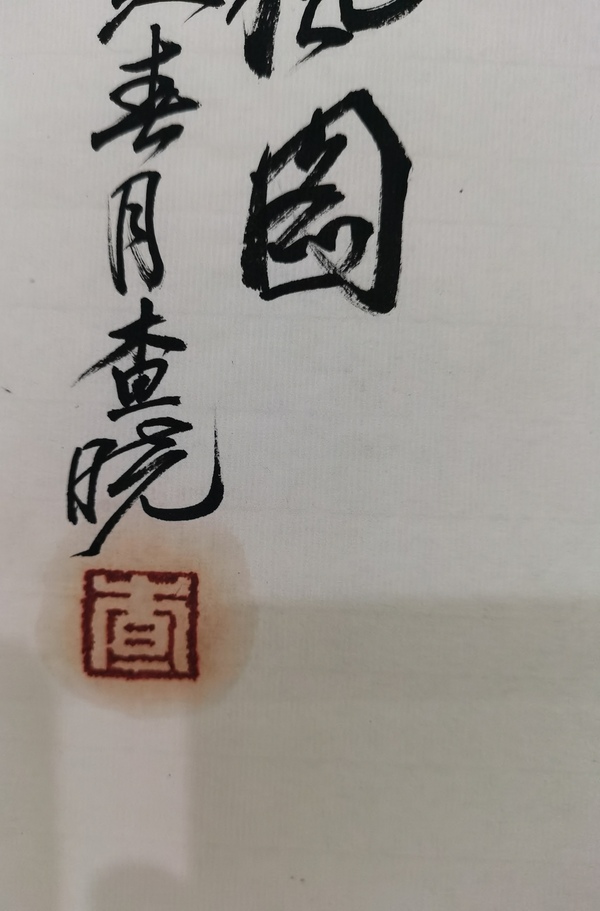 图
春月查晓
查